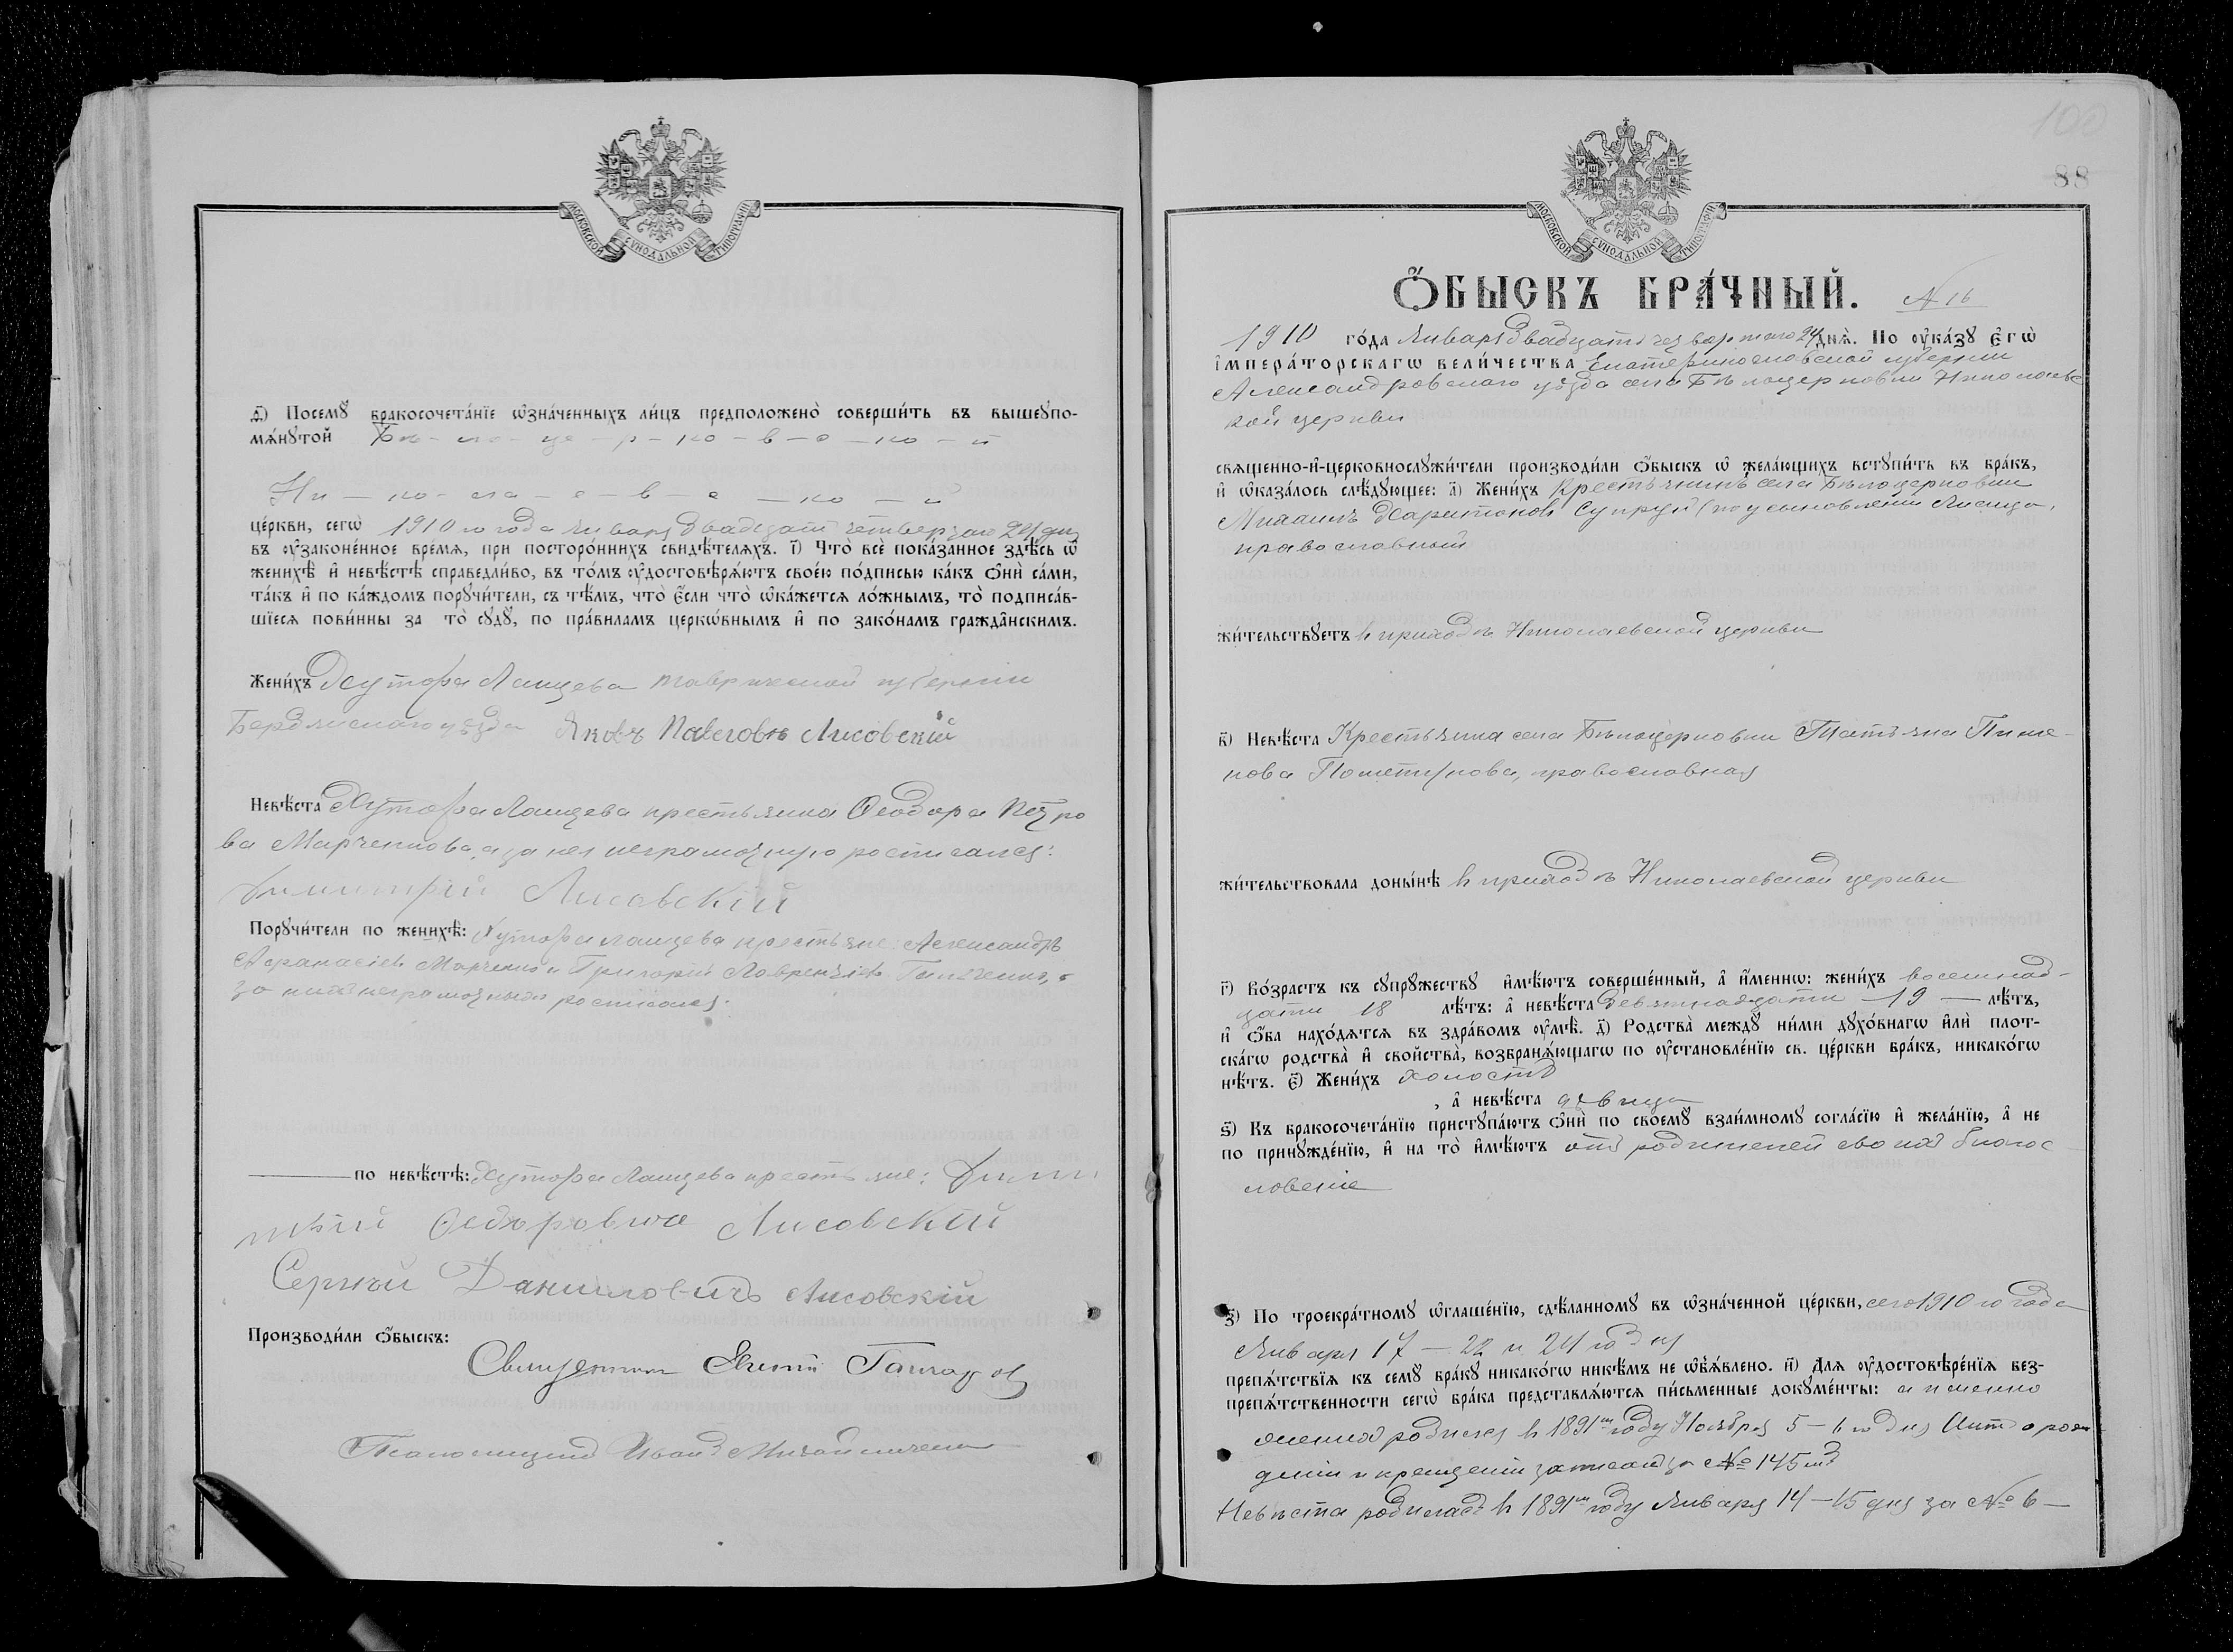 МОСКОВСКОЙ СѴНОДАЛЬНОЙ ТИПОГРАФІИ
Посемꙋ бракосочета́нїе ѡ҆зна́ченныхъ ли́цъ предположено̀ соверши́ть въ вышеꙋпо-
мѧ́нꙋтой Бѣ-ло-це-р-ко-в-с-ко-й
Ни-ко-ла-е-в-с-ко-й
це́ркви, сегѡ̀ 1910го года Января двадцать четвертаго 24 дня
въ ᲂу҆законе́нное вре́мѧ, при посторо́ннихъ свидѣ́телѧхъ. і҃) Что̀ всѐ пока́занное здѣ́сь ѡ҆
женихѣ̀ и҆ невѣ́стѣ справедли́во, въ то́мъ ᲂу҆достовѣрѧ́ютъ свое́ю по́дписью ка́къ ѻ҆нѝ са́ми,
та́къ и҆ по ка́ждомъ порꙋчи́тели, съ тѣ́мъ, что̀ є҆́сли что̀ ѡ҆ка́жетсѧ ло́жнымъ, то̀ подписа́в-
шїесѧ пови́нны за то̀ сꙋдꙋ̀, по пра́виламъ церкѡ́внымъ и҆ по зако́намъ гражда̂нскимъ.
Жени́хъ Хутора Ланцева Таврической губернии
Бердянскаго уѣзда Яковъ Павловъ Лисовскій
Невѣ́ста Хутора Ланцева крестьянка Ѳеодора Петро
ва Марченкова, а за нея неграмотную росписался:
Димитрій Лисовскій
Порꙋчи́тели по женихѣ̀: Хутора Ланцева крестьяне: Александръ
Аѳанасіевъ Марченко и Григорій Лаврентіевъ
за нихъ неграмотныхъ росписался:
по невѣ́стѣ: Хутора Ланцева крестьяне: Дими
трій Ѳедоровичъ Лисовскій
Сергѣй Даниловичъ Лисовскій
Производи́ли ѻ҆́быскъ:
Священникъ
Псаломщикъ Иванъ
100
88
МОСКОВСКОЙ СѴНОДАЛЬНОЙ ТИПОГРАФІИ
Ѻ҆́БЫСКЪ БРА́ЧНЫЙ. № 16
1910 го́да Января двадцать четвертаго 24 днѧ̀. По ᲂу҆ка́зꙋ є҆гѡ̀
і҆мпера́торскагѡ вели́чества Екатеринославской губернии
Александровскаго уѣзда села Бѣлоцерковки Николаевс
кой церкви
свѧщенно-и҆-церковнослꙋжи́тели производи́ли ѻ҆́быскъ ѡ҆ жела́ющихъ встꙋпи́ть въ бра́къ,
и҆ ѡ҆каза́лось слѣ́дꙋющее: а҃) Жени́хъ Крестьянинъ села Бѣлоцерковки
Михаилъ Харитоновъ Супрун (по усыновленіи Лисица,
православный
жи́тельствꙋетъ въ приходѣ Николаевской церкви
в҃) Невѣ́ста Крестьянка села Бѣлоцерковки Татьяна Пиме-
нова православная
жи́тельствовала доны́нѣ въ приходѣ Николаевской церкви
г҃) Во́зрастъ къ сꙋпрꙋ́жествꙋ и҆мѣ́ютъ соверше́нный, а҆ и҆́меннѡ: жени́хъ восемнад-
цати 18 лѣ́тъ: а҆ невѣ́ста девятнадцати — 19 — лѣ́тъ,
и҆ ѻ҆́ба нахо́дѧтсѧ въ здра́вомъ ᲂу҆мѣ̀. д҃) Родства̀ междꙋ ни́ми дꙋхо́внагѡ и҆лѝ плот-
ска́гѡ родства̀ и҆ свойства̀, возбранѧ́ющагѡ по ᲂу҆становле́нїю св. це́ркви бра́къ, никако́гѡ
нѣ́тъ. є҃) Жени́хъ холостъ
, а҆ невѣ́ста дѣвица
ѕ҃) Къ бракосочета́нїю пристꙋпа́ютъ ѻ҆нѝ по своемꙋ̀ взаи́мномꙋ согла́сїю и҆ жела́нїю, а҆ не
по принꙋжде́нїю, и҆ на то̀ и҆мѣ́ютъ отъ родителей своихъ благос
ловеніе
з҃) По троекра́тномꙋ ѡ҆глаше́нїю, сдѣ́ланномꙋ въ ѡ҆зна́ченной це́ркви, сего 1910го года
Января 17 — 22 и 24го дня
препѧ́тствїѧ къ семꙋ̀ бра́кꙋ никако́гѡ никѣ́мъ не ѡ҆б̾ѧ́влено. и҃) Для ᲂу҆достовѣре́нїѧ без-
препѧ́тственности сегѡ̀ бра́ка представлѧ́ютсѧ пи́сьменные докꙋме́нты: а именно
женихъ родился въ 1891мъ году Ноября 5 — 6го дня Актъ о рож
деніи и крещеніи записанъ за № 145мъ
Невѣста родилась въ 1891мъ году Января 14 — 15 дня за № 6 —